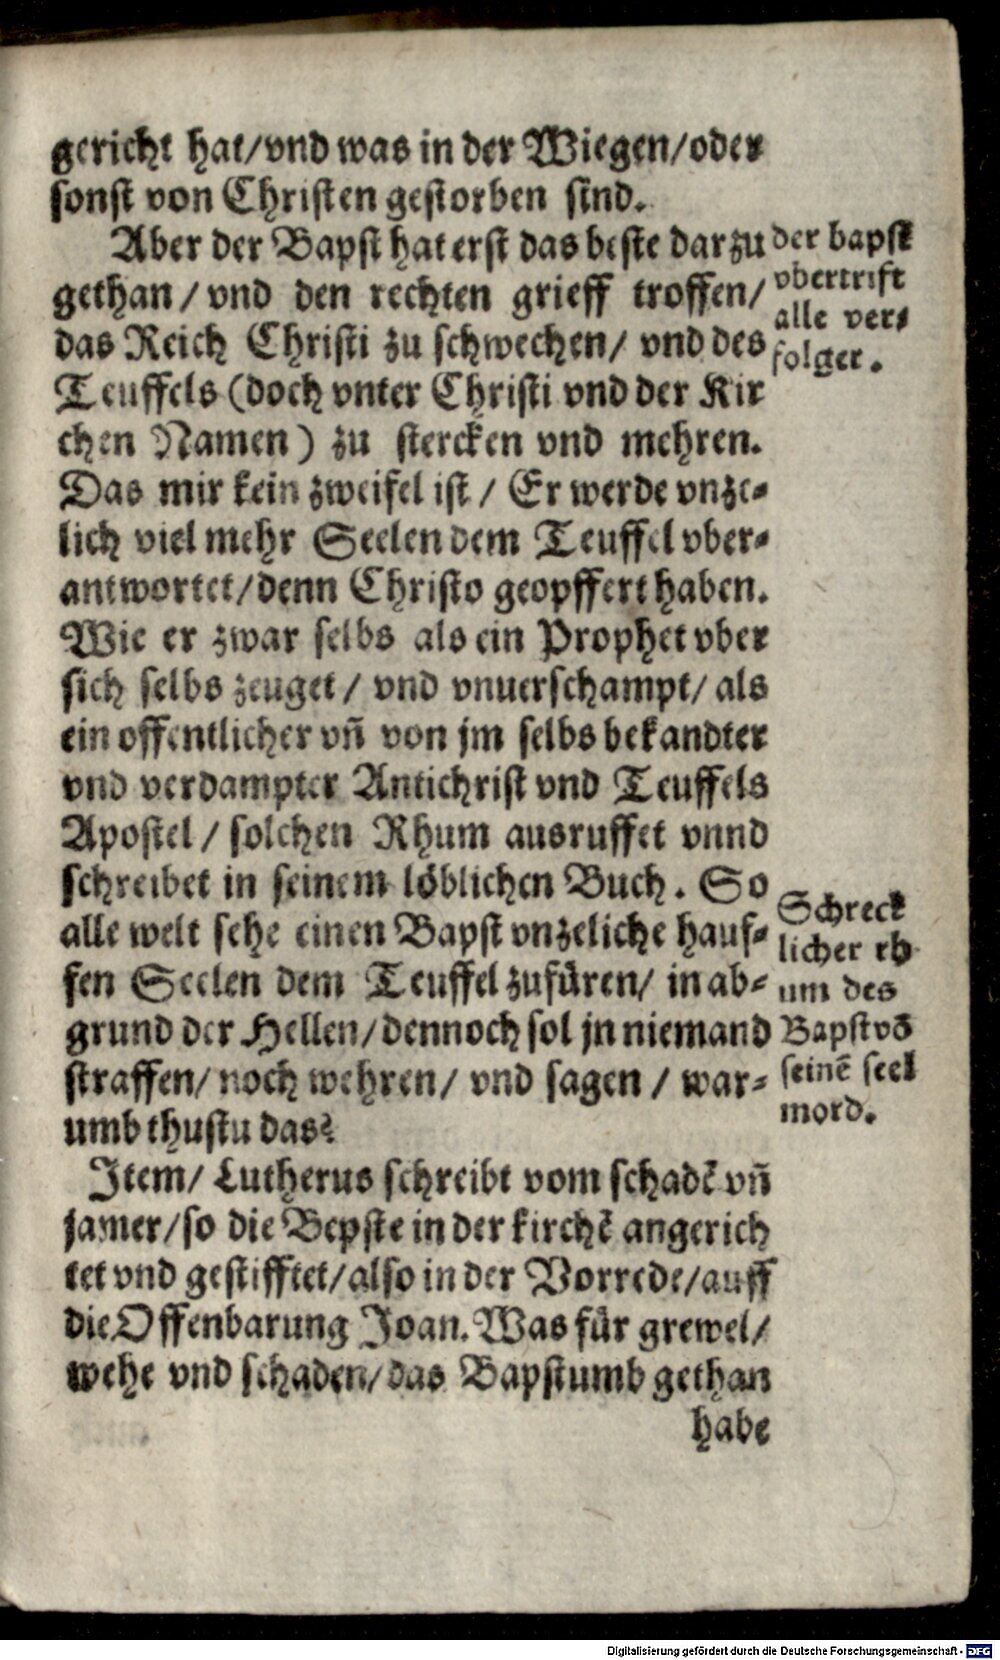 gericht hat/vnd was in der Wiegen/oder
sonst von Christen gestorben sind.
Aber der Bapst hat erst das beste darzu
gethan / vnd den rechten grieff troffen/
das Reich Christi zu schwechen/ vnd des
Teuffels (doch vnter Christi vnd der Kir
chen Namen) zu stercken vnd mehren.
Das mir kein zweifel ist / Er werde vnze-
lich viel mehr Seelen dem Teuffel vber-
antwortet/denn Christo geopffert haben.
Wie er zwar selbs als ein Prophet vber
sich selbs zeuget / vnd vnuerschampt/ als
ein offentlicher vñ von jm selbs bekandter
vnd verdampter Antichrist vnd Teuffels
Apostel / solchen Rhum ausruffet vnnd
schreibet in seinem löblichen Buch. So
alle welt sehe einen Bapst vnzeliche hauf-
fen Seelen dem Teuffel zufüren/ in ab-
grund der Hellen/dennoch sol jn niemand
straffen/ noch wehren/ vnd sagen / war-
umb thustu das?
Item/ Lutherus schreibt vom schadē vñ
jamer/so die Bepste in der kirchē angerich
tet vnd gestifftet/also in der Vorrede/auff
die Offenbarung Joan. Was für grewel/
wehe vnd schaden/das Bapstumb gethan
habe
der bapst
vbertrift
alle ver-
folger.
Schreck
licher rh
um des
Bapst vō
seinē seel
mord.
Digitalisierung gefördert durch die Deutsche Forschungsgemeinschaft - DFG